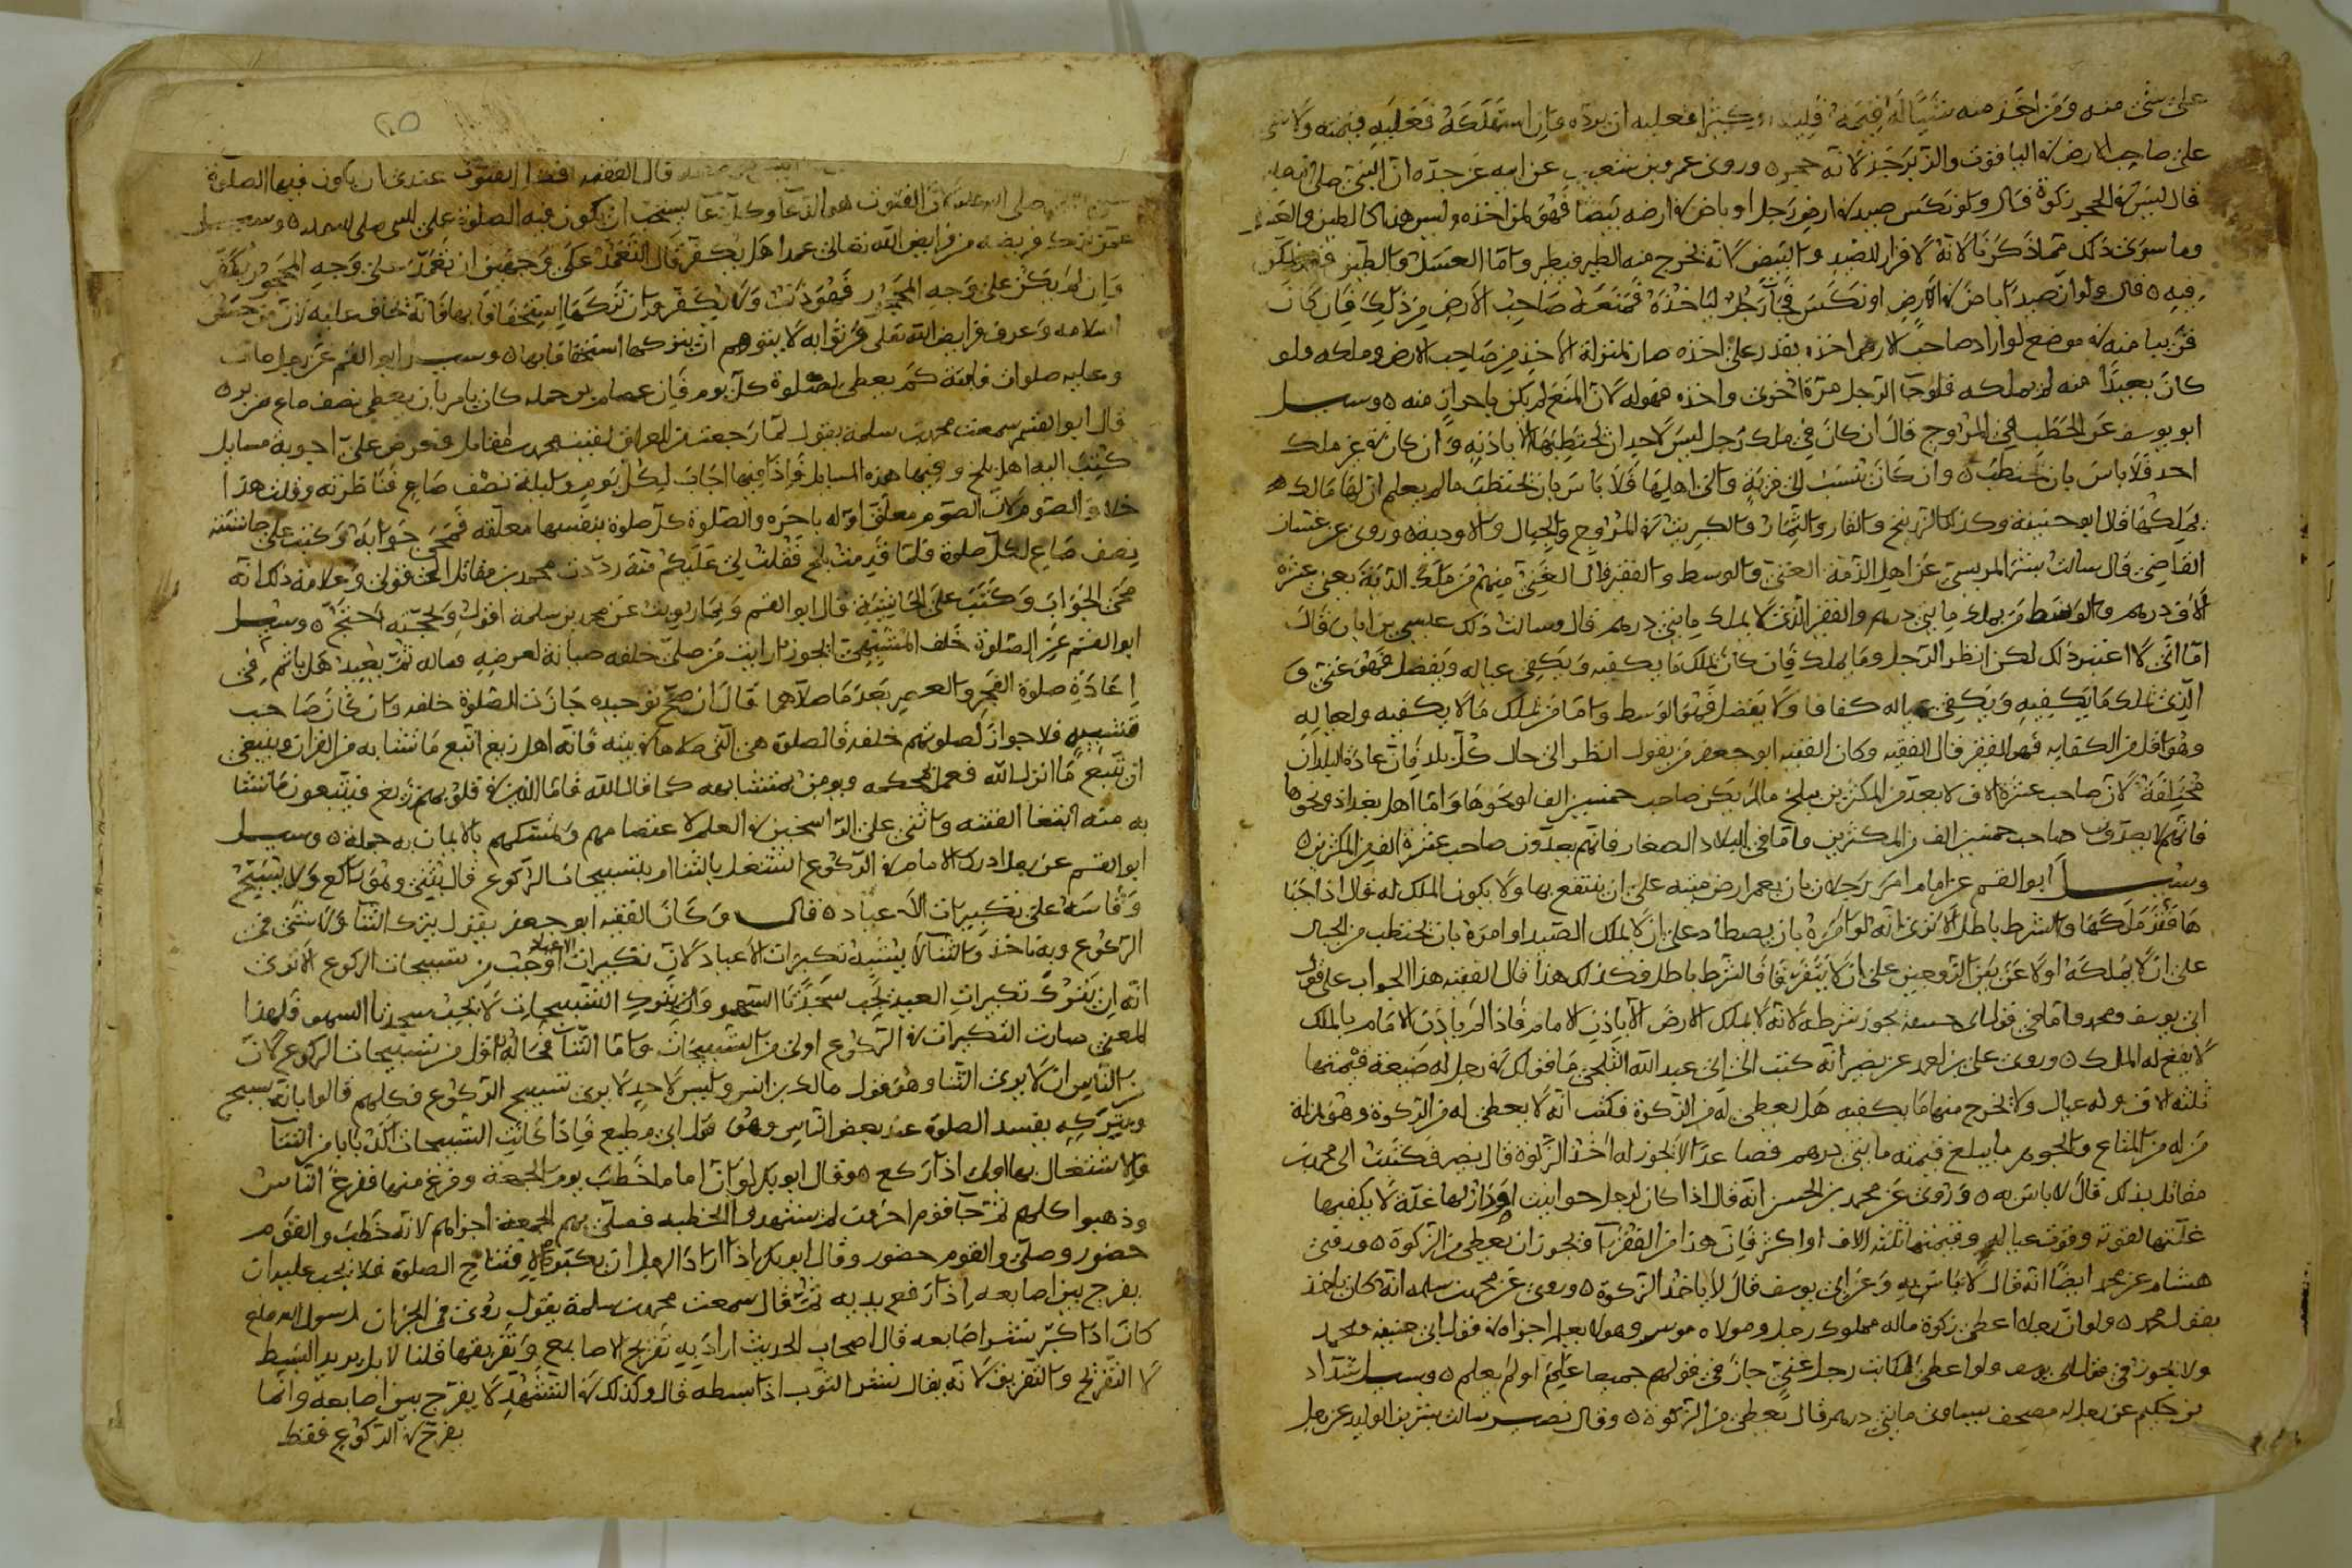 على شئ منه ومن اخذ منه شيئا له قيمة قليلا او كثيرا فعليه ان يرده فان استهلكه فعليه قيمته ولا شئ
على صاحب الارض في الياقوت والزبرجد لانه حجر ه وروى عمرو بن شعيب عن ابيه عن جده ان النبي صلى الله عليه
قال ليس في الحجر زكوة قال ولو تكنس صيد في ارض رجل او باض في ارضه بيضا فهو لمن اخذه وليس هذا كالطين والعسل
وما سوى ذلك مما ذكرنا لانه لا قرار للصيد والبيض لانه يخرج منه الطير فيطير واما العسل والطين
فيه ه قال ولو ان صيدا باض في الارض او تكنس فجآء رجل لياخذه فمنعه صاحب الارض من ذلك فان كان
قريبا منه في موضع لو اراد صاحب الارض اخذه يقدر على اخذه صار بمنزلة الاخذ من صاحب الارض وملكه ولو
كان بعيدا منه لم يملكه فلو جآ الرجل مرة اخرى واخذه فهو له لان المنع لم يكن باحراز منه ه وسيل
ابو يوسف عن الحطب في المروج قال ان كان في ملك رجل ليس لاحد ان يحتطبها الا باذنه وان كان في غير ملك
احد فلا باس بان يحتطب ه وان كان تنسب الى قرية والى اهلها فلا باس بان يحتطب ما لم يعلم ان لها مالك ه
يملكها قال ابو حنيفة وكذلك الزرنيخ والقار والثمار والكبريت في المروج والجبال والاودية ه وروى عن غسان
القاضي قال سالت بشر المريسي عن اهل الذمة الغني والوسط والفقير قال الغني منهم من ملك الدية يعني عشرة
الاف درهم والوسط من يملك مايتي درهم والفقير الذي لا يملك مايتي درهم قال وسالت ذلك عيسى بن ابان قال
اما اني لا اعتبر ذلك لكن انظر الرجل وما يملك فان كان يملك ما يكفيه ويكفي عياله ويفضل فهو غني و
الذي يملك ما يكفيه ويكفي عياله كفافا ولا يفضل فهو الوسط واما من يملك ما لا يكفيه ولعياله
وهو اقل من الكفاية فهو الفقير قال الفقيه وكان الفقيه ابو جعفر يقول انظر الى حال كل بلد فان عادة البلدان
مختلفة لان صاحب عشرة الاف لا يعد من المكثرين ببلخ ما لم يكن صاحب خمسين الف او نحوها واما اهل بغداذ ونحوها
فانهم لا يعدون صاحب خمسين الف من المكثرين واما في البلاد الصغار فانهم يعدون صاحب عشرة الف من المكثرين ه
وسيل ابو القسم عن امام امر رجلا بان يعمر ارض ميتة على ان ينتفع بها ولا يكون الملك له قال اذا احيا
ها فقد ملكها والشرط باطل الا ترى انه لو امره بان يصطاد على ان لا يملك الصيد او امره بان يحتطب من الجبال
على ان لا يملكه او لا عن بين الزوجين على ان لا يتفرقا فالشرط باطل فكذلك هذا قال الفقيه هذا الجواب على قول
ابي يوسف ومحمد واما في قول ابي حنيفة يجوز شرطه لانه لا يملك الارض الا باذن الامام فاذا لم ياذن الامام بالملك
لا يقع له الملك ه وروى على بن احمد عن نصير انه كتب الى ابي عبد الله البلخي ما قولك في رجل له ضيعة قيمتها
ثلثة الاف وله عيال ولا يخرج منها ما يكفيه هل يعطى له من الزكوة فكتب انه لا يعطى له من الزكوة وهو بمنزلة
من له من المتاع والجوهر ما يبلغ قيمته مايتي درهم فصاعدا لا يجوز له اخذ الزكوة قال نصير فكتبت الى محمد بن
مقاتل بذلك قال لا باس به ه وروى عن محمد بن الحسن انه قال اذا كان لرجل حوانيت او دار لها غلة لا يكفيها
غلتها لقوته وقوت عياله وقيمتها ثلثة الاف او اكثر فان هذا من الفقرآ ويجوز ان يعطى من الزكوة ه وروى
هشام عن محمد ايضا انه قال لا باس به وعن ابي يوسف قال لا ياخذ الزكوة ه وروى عن محمد بن سلمة انه كان ياخذ
بقول محمد ه ولو ان رجلا اعطى زكوة ماله مملوك رجل ومولاه موسر وهو لا يعلم اجزاه في قول ابي حنيفة ومحمد
ولا يجوز في قول ابي يوسف ولو اعطى المكاتب رجل غني جاز في قولهم جميعا علم او لم يعلم ه وسيل شداد
بن حكيم عن رجل له مصحف يساوي مايتي درهم قال يعطى من الزكوة ه وقال نصير سالت بشر بن الوليد عن رجل
٢٥
قال الفقيه القنوت عندي ان يكون فيها الصلوة
صلى الله عليه لان القنوت هو الدعآ وكل دعآ يستحب ان يكون فيه الصلوة على النبي صلى الله عليه ه وسيل
عمن ترك فريضة من فرايض الله تعالى عمدا هل يكفر قال التعمد على وجهين ان تعمد على وجه الجحود يكفر
وان لم يكن على وجه الجحود فهو ذنب ولا يكفر وان تركها استخفافا بها فانه يخاف عليه لان من حسن
اسلامه وعرف فرايض الله تعلى وثوابه لا يتوهم ان يتركها استخفافا بها ه وسيل ابو القسم عن رجل مات
وعليه صلوات فايتة كم يعطى لصلوة كل يوم فان عصام رحمه كان يامر بان يعطى نصف صاع من بر ه
قال ابو القسم سمعت محمد بن سلمة يقول لما رجعت من العراق لقيت محمد بن مقاتل فعرض على اجوبة مسايل
كتب اليه اهل بلخ وفيها هذه المسايل فاذا فيها اجاب لكل يوم وليلة نصف صاع فناظرته وقلت هذا
خلاف الصوم لان الصوم معلق اوله باخره والصلوة كل صلوة بنفسها معلقة فمحى جوابه وكتب على حاشيته
نصف صاع لكل صلوة فلما قدمت بلخ فقلت لي عليكم منة رددت محمد بن مقاتل الى قولي وعلامة ذلك انه
محى الجواب وكتب على الحاشية قال ابو القسم وبما رويت عن محمد بن سلمة اقول ولحجته احتج ه وسيل
ابو القسم عن الصلوة خلف المشبهة ايجوز ارايت من صلى خلفه صيانة لعرضه وماله ثم يعيد هل ياثم في
اعادة صلوة الفجر والعصر بعد ما صلاهما قال ان صح توحيده جازت الصلوة خلفه وان كان صاحب
تشبيه فلا جواز لصلوتهم خلفه فالصلوة هي التي صلاها في بيته فانه اهل زيغ اتبع ما تشابه من القران وينبغي
ان يتبع ما انزل الله فعمل بمحكمه ويومن بمتشابهه كما قال الله فاما الذين في قلوبهم زيغ فيتبعون ما تشا
به منه ابتغا الفتنة واثنى على الراسخين في العلم لاعتصامهم وتمسكهم بالايمان به جملة ه وسيل
ابو القسم عن رجل ادرك الامام في الركوع ايشتغل بالثنا ام بتسبيحات الركوع قال يثني وهو راكع ولا يسبح
وقاسه على تكبيرات الاعياد ه قال وكان الفقيه ابو جعفر يقول يترك الثنآ ولا يثني في
الركوع وبه ناخذ والثنآ لا يشبه تكبيرات الاعياد لان تكبيرات الاعياد اوجب من تسبيحات الركوع الا ترى
انه ان يترك تكبيرات العيد يجب سجدتا السهو وان يترك التسبيحات لا يجب سجدتا السهو فلهذا
المعنى صارت التكبيرات في الركوع اولى من التسبيحات واما الثنآ فحاله اقل من تسبيحات الركوع لان
من الناس ان لا يرى الثنا وهو قول مالك بن انس وليس لاحد لا يرى تسبيح الركوع فكلهم قالوا بانه يسبح
وبتركه يفسد الصلوة عند بعض الناس وهو قول ابي مطيع فاذا كانت التسبيحات اكد بابا من الثنآ
فالاشتغال بها اولى اذا ركع ه وقال ابو بكر لو ان اماما خطب يوم الجمعة وفرغ منها ففزع الناس
وذهبوا كلهم ثم جآ قوم اخرون لم يشهدوا الخطبة فصلى بهم الجمعة اجزاهم لانه خطب والقوم
حضور وصلى والقوم حضور وقال ابو بكر اذا اراد الرجل ان يكبر لافتتاح الصلوة فلا يجب عليه ان
يفرج بين اصابعه اذا رفع يديه ثم قال سمعت محمد بن سلمة يقول روى في الخبر ان رسول الله صلعم
كان اذا كبر نشر اصابعه قال اصحاب الحديث اراد به تفريج الاصابع وتفريقها قلنا لا بل يريد البسط
لا التفريج والتفريق لانه يقال نشر الثوب اذا بسطه قال وكذلك في التشهد لا يفرج بين اصابعه وانما
يفرج في الركوع فقط